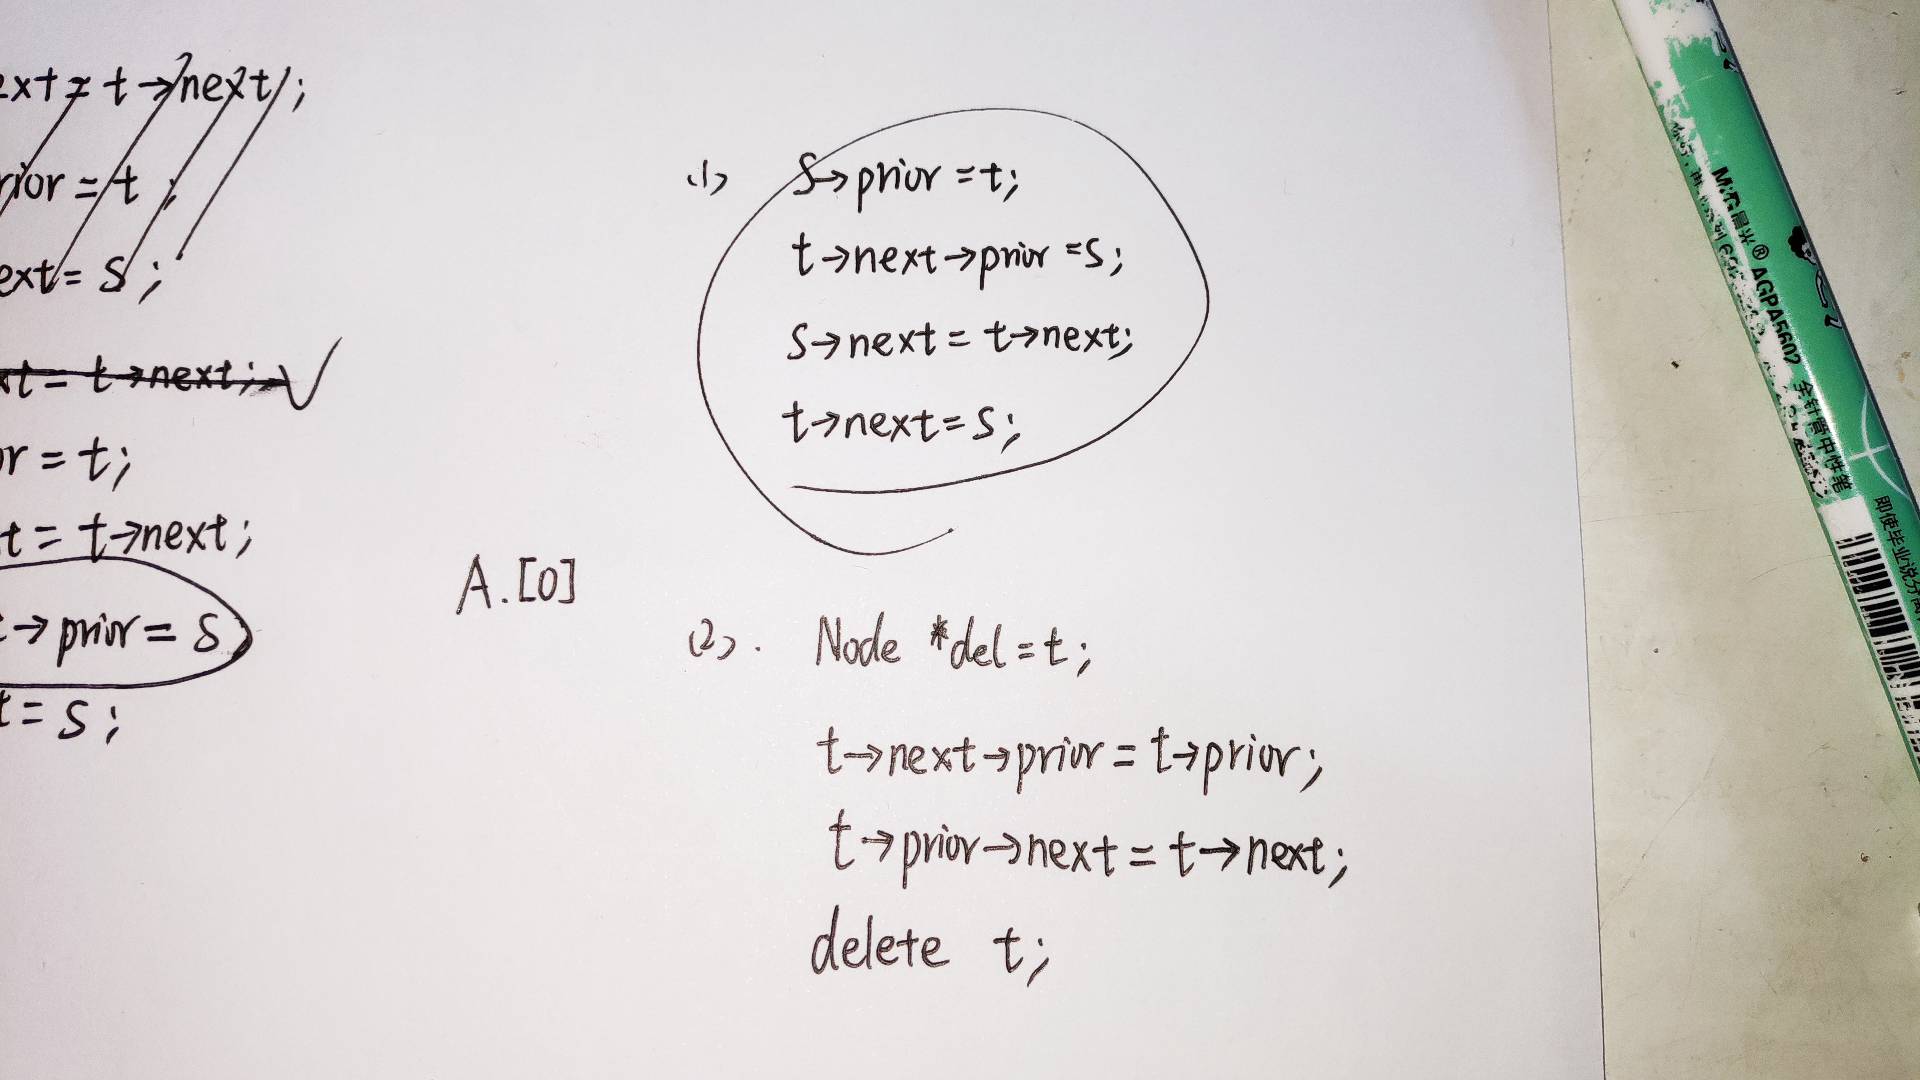 ext = t→next;
rior = t;
ext = s;
xt = t→next;
or = t;
t = t→next;
t→prior = s
t = s;
A.[0]
(1) s→prior = t;
t→next→prior = s;
s→next = t→next;
t→next = s;
(2). Node *del = t;
t→next→prior = t→prior;
t→prior→next = t→next;
delete t;
M&G晨光® AGPA5602 全针管中性笔